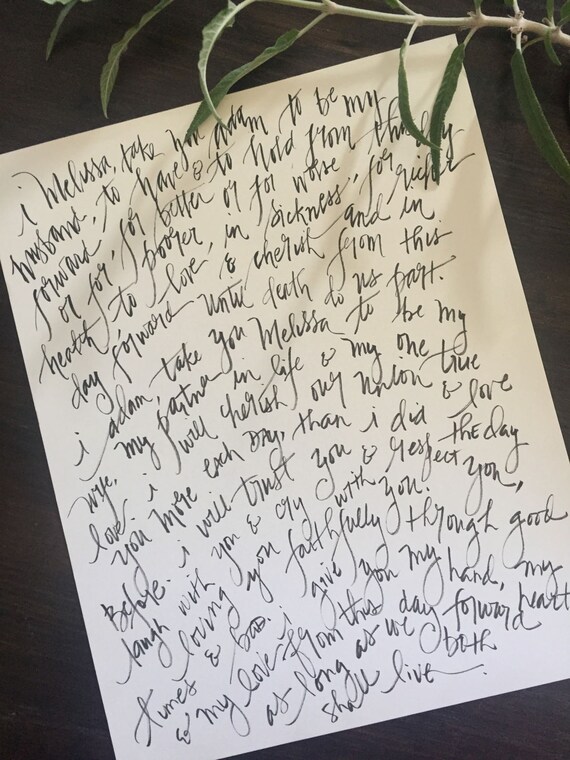 i Melissa, take you adam to be my
husband, to have & to hold from this day
forward, for better or for worse, for richer
or for poorer, in sickness, and in
health to love & cherish from this
day forward until death do us part.
i adam, take you Melissa to be my
wife, my partner in life & my one true
love. i will cherish our union & love
you more each day, than i did the day
Before. i will trust you & respect you,
laugh with you & cry with you.
loving you faithfully through good
times & bad. i give you my hand, my heart
& my love from this day forward
as long as we both
shall live.